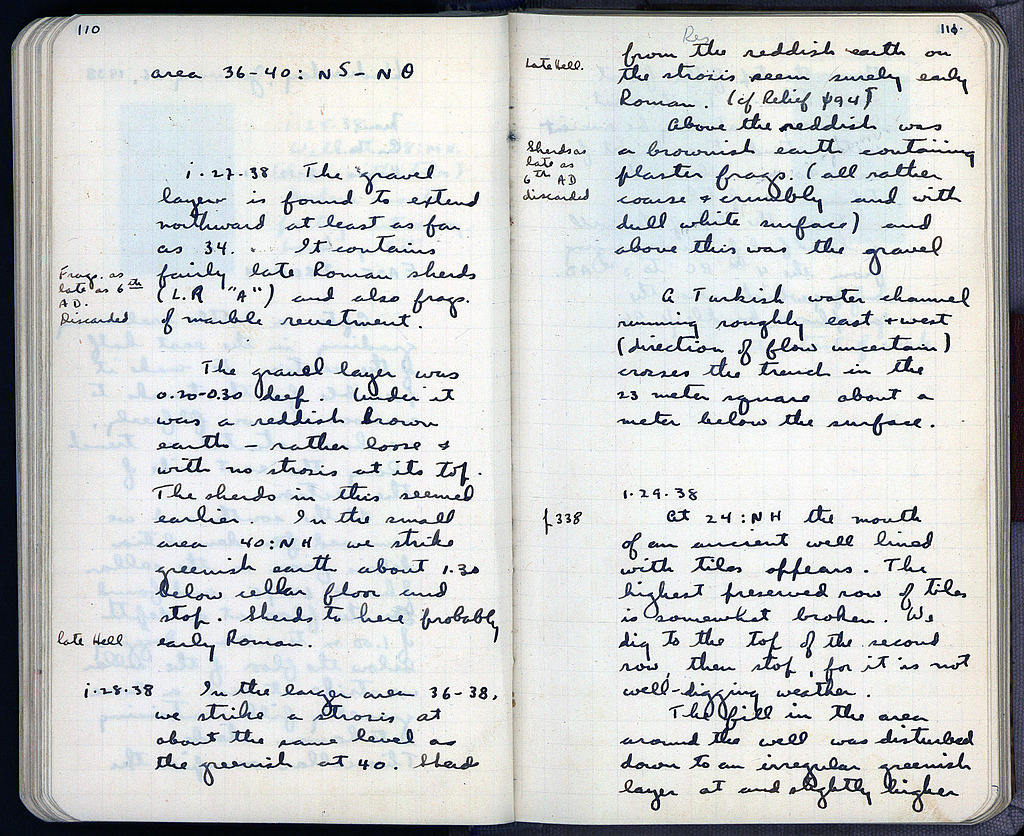 110
area 36-40: NS-NΘ
1.27.38 The gravel
layer is found to extend
northward at least as far
as 34. It contains
Frags. as
late as 6th
AD.
Discarded
fairly late Roman sherds
(L.R "A") and also frags.
of marble revetment.
The gravel layer was
0.20-0.30 deep. Under it
was a reddish brown
earth - rather loose &
with no strosis at its top.
The sherds in this seemed
earlier. In the small
area 40:NH we strike
greenish earth about 1.30
below cellar floor and
stop. Sherds to here probably
late Hell
early Roman.
1.28.38 In the larger area 36-38,
we strike a strosis at
about the same level as
the greenish at 40. Sherds
111
Late Hell.
from the reddish earth on
the strosis seem surely early
Roman. (cf Relief p94)
Above the reddish was
Sherds as
late as
6th AD
discarded
a brownish earth containing
plaster frags. (all rather
coarse & crumbly and with
dull white surface) and
above this was the gravel
A Turkish water channel
running roughly east & west
(direction of flow uncertain)
crosses the trench in the
23 meter square about a
meter below the surface.
1.29.38
f338
At 24:NH the mouth
of an ancient well lined
with tiles appears. The
highest preserved row of tiles
is somewhat broken. We
dig to the top of the second
row, then stop, for it is not
well-digging weather.
The fill in the area
around the well was disturbed
down to an irregular greenish
layer at and slightly higher